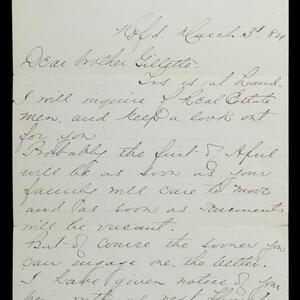 Htfd. March 3d 84
Dear brother Gillette.
Yrs is at hand.
I will inquire of Real Estate
men, and keep a look out
for you.
Probably the first of April
will be as soon as your
family will care to move
and as soon as Tenements
will be vacant.
But of course the sooner you
can engage one, the better.
I have given notice of you